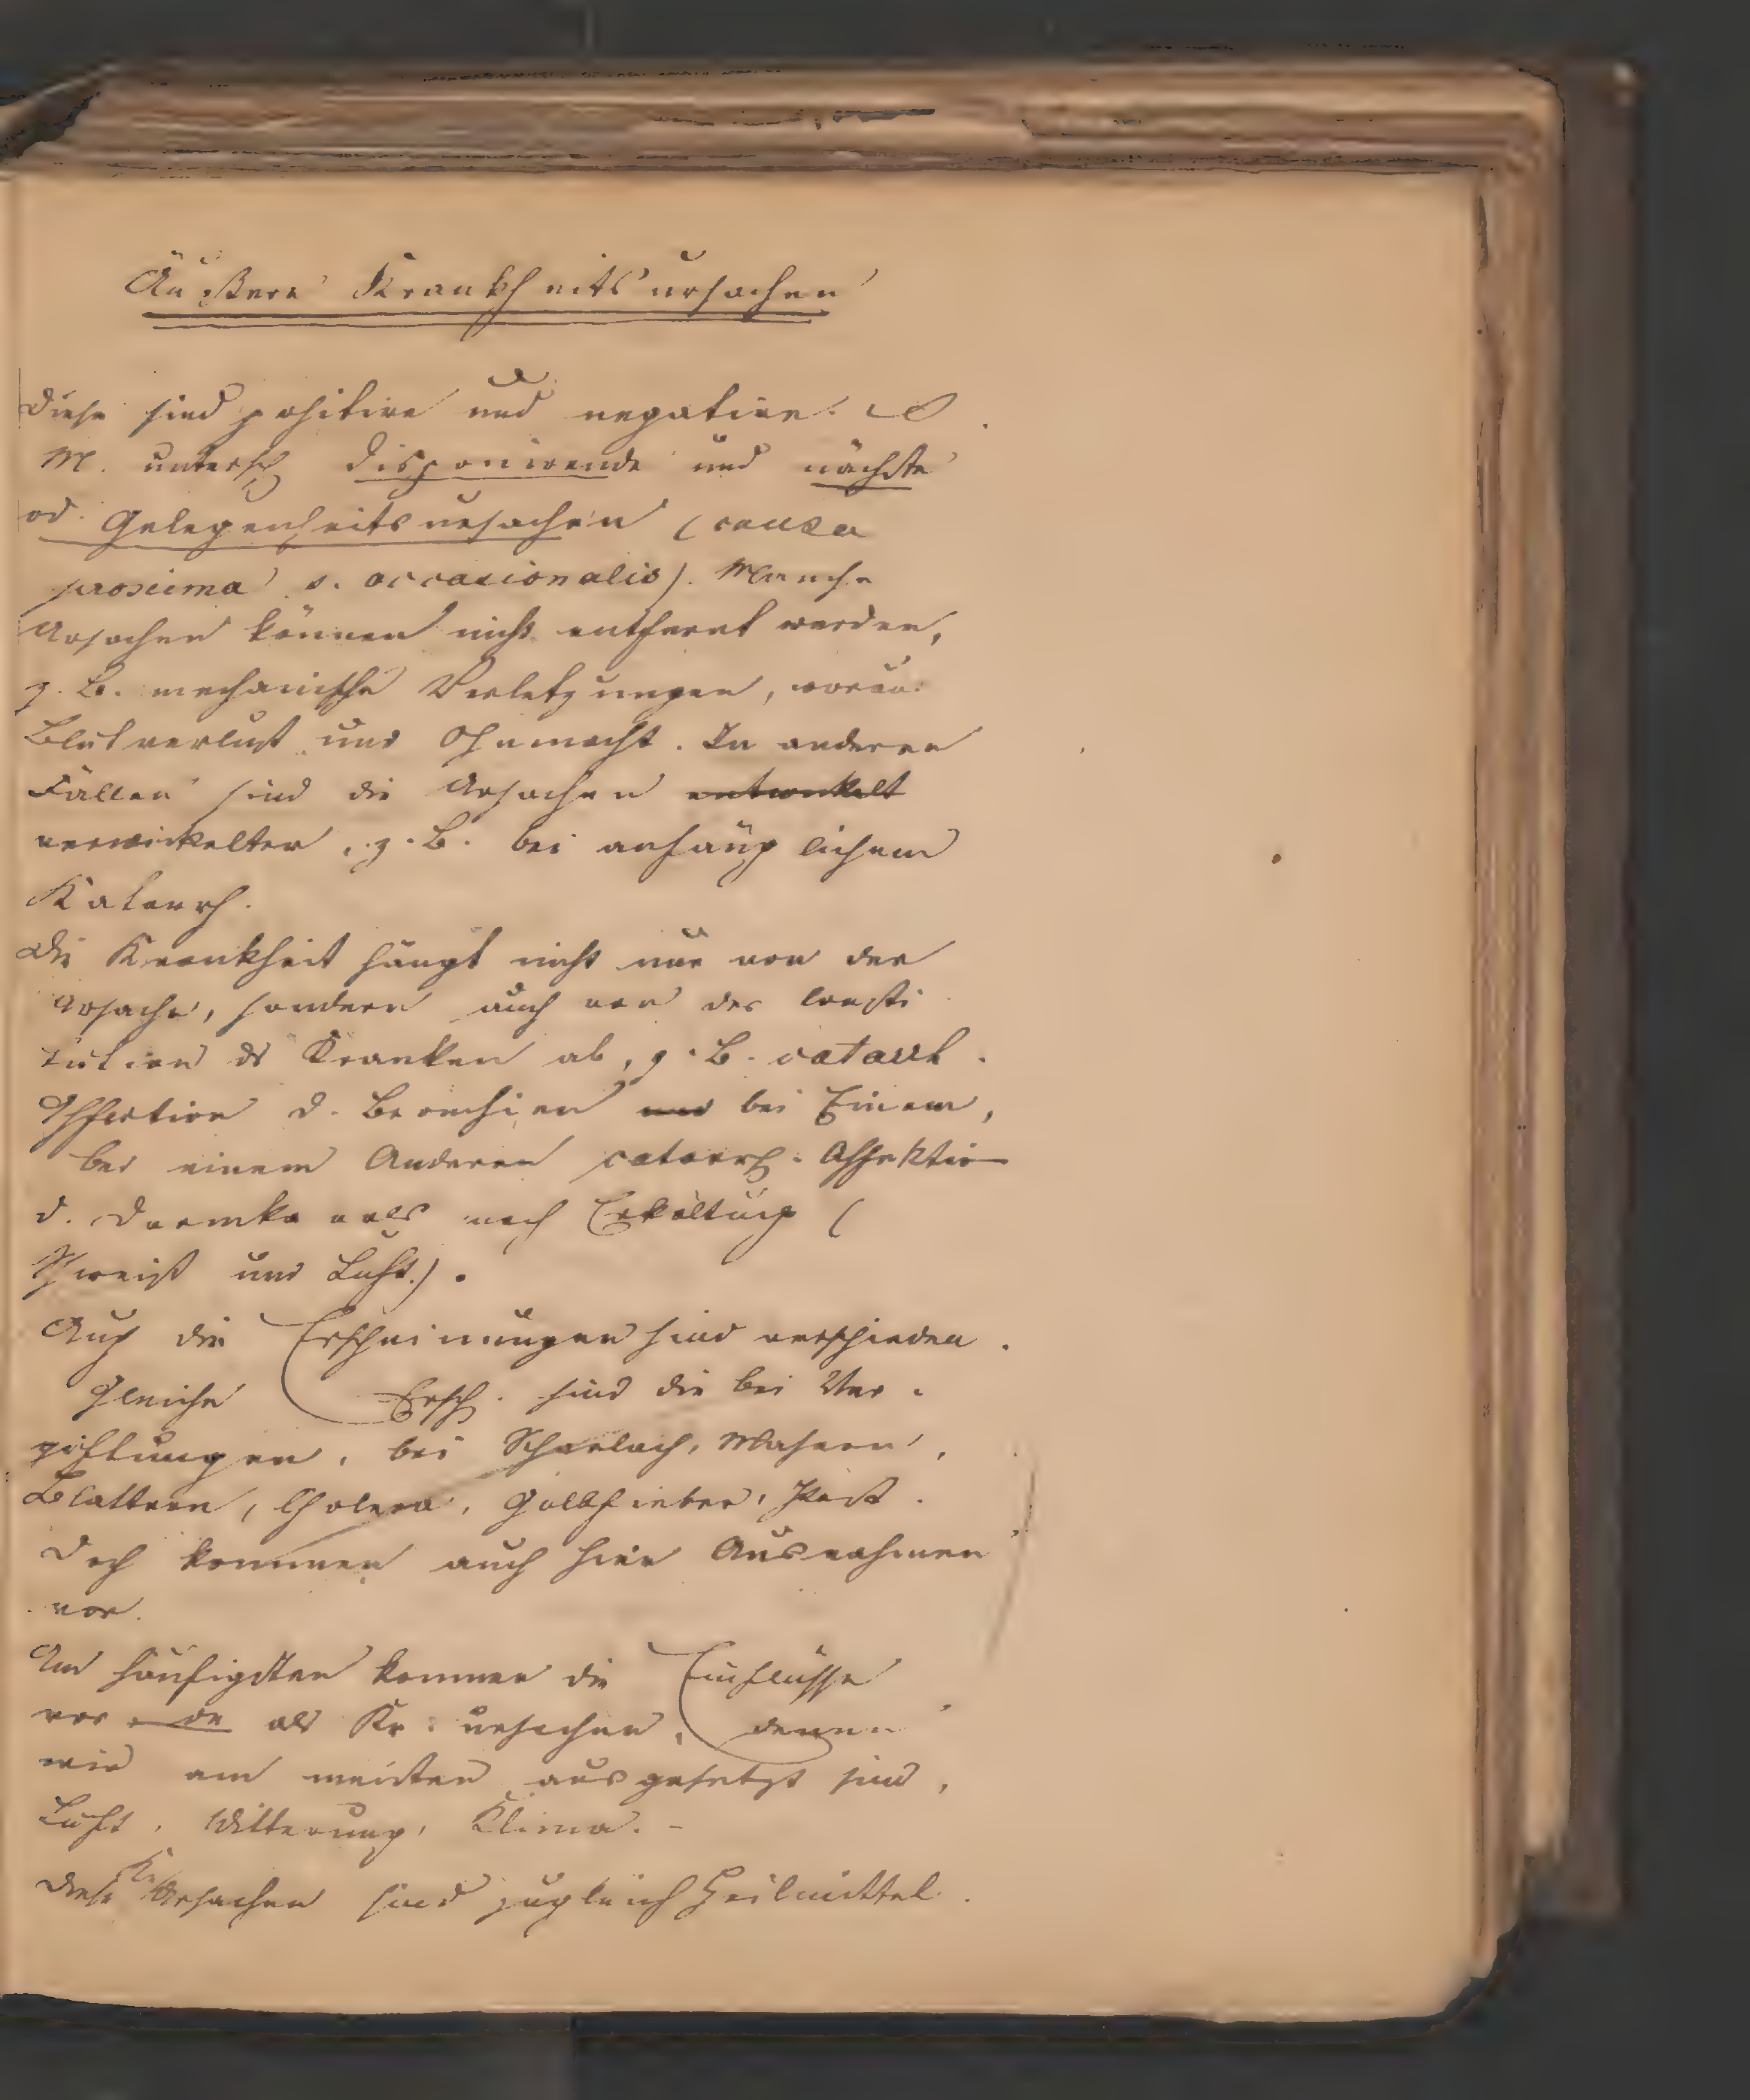 Äußere Krankheitsursachen
Diese sind positive und negative.
M. untersch disponirende und nächste
od. Gelegenheitsursachen (causa
proxima s. occasionalis). Manche
Ursachen können nicht entfernt werden,
z. B. mechanische Verletzungen, woran
Blutverlust und Ohnmacht. In anderen
Fällen sind die Ursachen entwickelt
verwickelter, z. B. bei anfänglichem
Katarrh.
Die Krankheit hängt nicht nur von der
Ursache, sondern auch von der Consti
tution ds Kranken ab, z. B. catarrh.
Affection d. Bronchien und bei Einem,
bei einem Anderen catarrh. Affektion
d. Darmkanals nach Erkältung (
Schweiß und Luft).
Auch die Erscheinungen sind verschieden.
Gleiche Ersch. sind die bei Ver-
giftungen, bei Scharlach, Masern,
Blattern, Cholera, Gelbfieber, Pest.
Doch kommen auch hier Ausnahmen
vor.
Am häufigsten kommen die Einflüsse
vor, de als Kr: ursachen, denen
wir am meisten ausgesetzt sind,
Luft, Witterung, Klima. -
Diese Kr Ursachen sind zugleich Heilmittel.